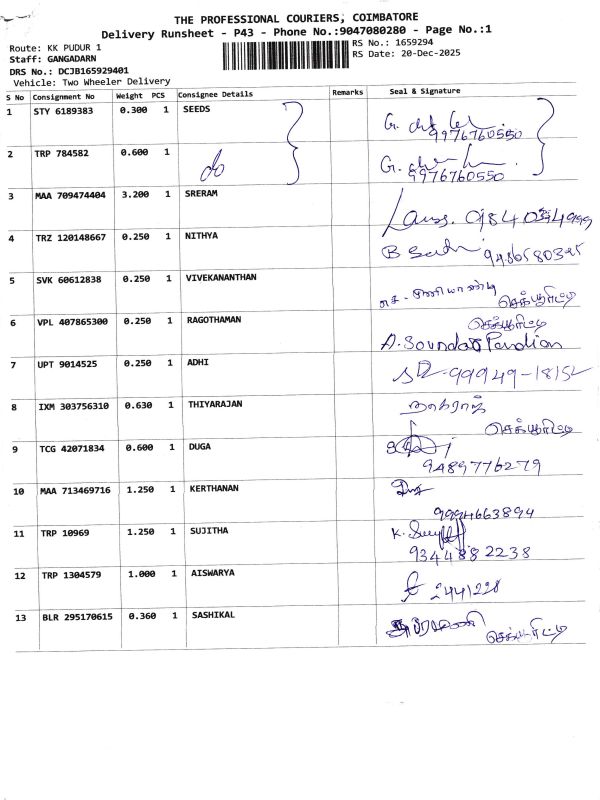 THE PROFESSIONAL COURIERS, COIMBATORE
Delivery Runsheet - P43 - Phone No.:9047080280 - Page No.:1
Route: KK PUDUR 1
RS No.: 1659294
Staff: GANGADARN
RS Date: 20-Dec-2025
DRS No.: DCJB165929401
Vehicle: Two Wheeler Delivery
S No Consignment No Weight PCS Consignee Details Remarks Seal & Signature
1 STY 6189383 0.300 1 SEEDS G.
9976760550
2 TRP 784582 0.600 1 do G.
9976760550
3 MAA 709474404 3.200 1 SRERAM
4 TRZ 120148667 0.250 1 NITHYA B
5 SVK 60612838 0.250 1 VIVEKANANTHAN
செக்யூரிட்டி
6 VPL 407865300 0.250 1 RAGOTHAMAN செக்யூரிட்டி
A. Soundar Pandian
7 UPT 9014525 0.250 1 ADHI 99949-18152
8 IXM 303756310 0.630 1 THIYARAJAN நாகராஜ்
செக்யூரிட்டி
9 TCG 42071834 0.600 1 DUGA
9489776279
10 MAA 713469716 1.250 1 KERTHANAN
9994663894
11 TRP 10969 1.250 1 SUJITHA K.
9344882238
12 TRP 1304579 1.000 1 AISWARYA 2441228
13 BLR 295170615 0.360 1 SASHIKAL செக்யூரிட்டி